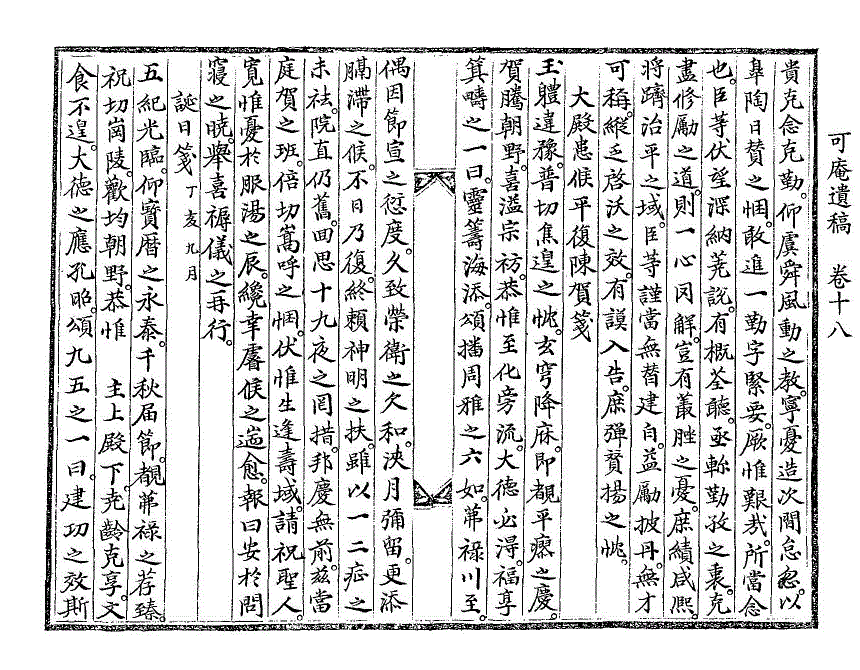 可庵遺稿 卷十八
貴克念克勤。仰虞舜風動之敎。寧憂造次間怠忽。以
臯陶日贊之悃。敢進一勤字緊要。厥惟艱哉。所當念
也。臣等伏望深納蕘說。有槪荃聽。亟軫勤孜之裏。克
盡修勵之道。則一心罔解。豈有叢脞之憂。庶績咸熙。
將躋治平之域。臣等謹當無替建白。益勵披丹。無才
可稱。縱乏啓沃之效。有謨入告。庶殫贊揚之忱。
大殿患候平復陳賀箋
玉軆違豫。普切焦遑之忱。玄穹降庥。卽覩平瘳之慶。
賀騰朝野。喜溢宗祊。恭惟至化旁流。大德必得。福享
箕疇之一曰。靈籌海添。頌播周雅之六如。茀祿川至。
偶因節宣之愆度。久致榮衛之欠和。浹月彌留。更添
膈滯之候。不日乃復。終賴神明之扶。雖以一二症之
未祛。院直仍舊。回思十九夜之罔措。邦慶無前。玆當
庭賀之班。倍切嵩呼之悃。伏惟生逢壽域。請祝聖人。
寬惟憂於服湯之辰。纔幸睿候之遄愈。報曰安於問
寢之曉。擧喜褥儀之再行。
誕日箋 丁亥九月
五紀光臨。仰寶曆之永泰。千秋屆節。覩茀祿之荐臻。
祝切崗陵。歡均朝野。恭惟 主上殿下。堯齡克享。文
食不遑。大德之應孔昭。頌九五之一曰。建功之效斯